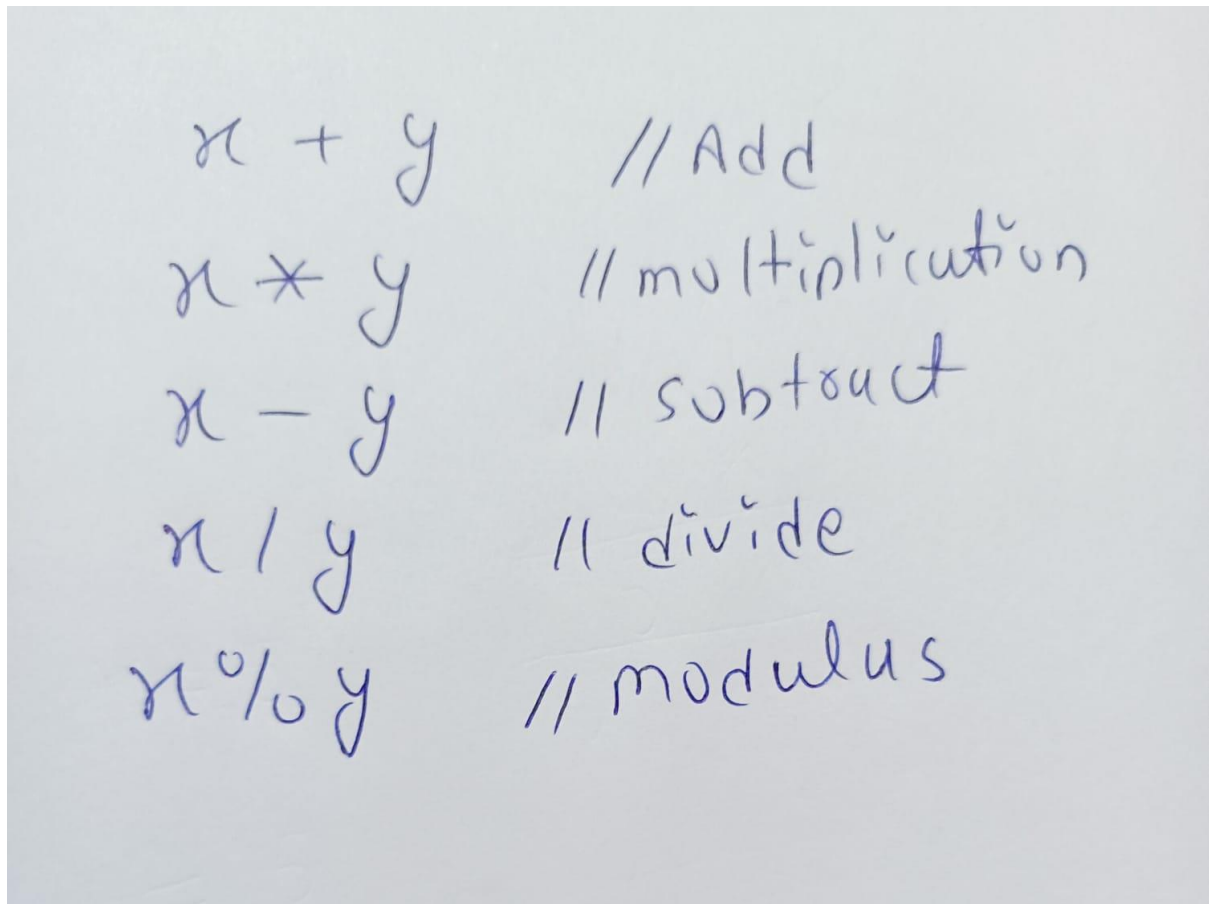 x + y //Add
x * y //multiplication
x - y // subtract
x / y // divide
x % y // modulus